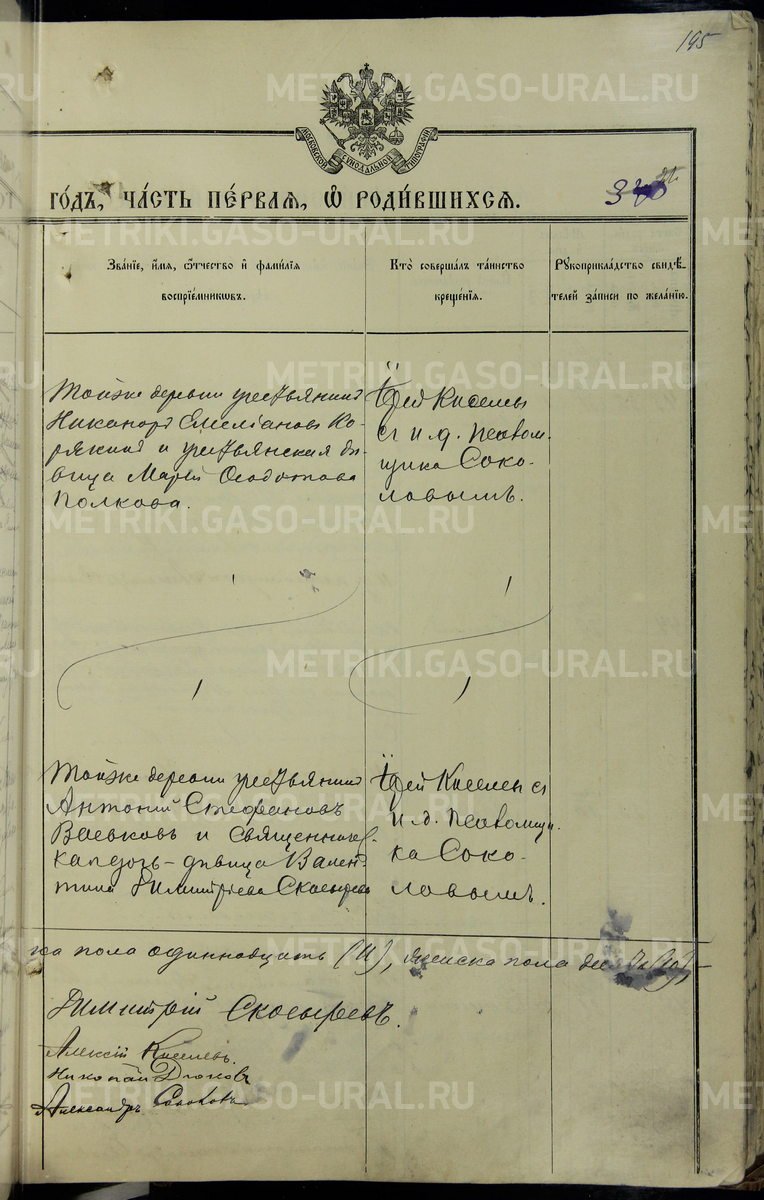 195
МОСКОВСКОЙ СѴНОДАЛЬНОЙ ТИПОГРАФІИ
ГОДЪ, ЧАСТЬ ПЕРВАЯ, Ѿ РОДИВШИХСЯ.
Званіе, имя, отчество и фамилія
воспріемниковъ.
Кто совершалъ таинство
крещенія.
Рукоприкладство свидѣ-
телей записи по желанію.
Тойже деревни крестьянинъ
Никаноръ Емеліановъ Ко-
рякинъ и крестьянская дѣ-
вица Марія Ѳеодотова
Полкова.
Іерей Киселевъ
съ и. д. псалом-
щика Соко-
ловымъ.
Тойже деревни крестьянинъ
Антоній Стефановъ
и священниче-
дочь - дѣвица Вален-
тина Димитріева Скосырева
Іерей Киселевъ съ
и. д. псаломщи-
ка Соко-
ловымъ.
ка пола одиннадцать (11), женска пола
Димитрій Скосыревъ.
Алексій Киселевъ.
Николай
Александръ Соколовъ
METRIKI.GASO-URAL.RU